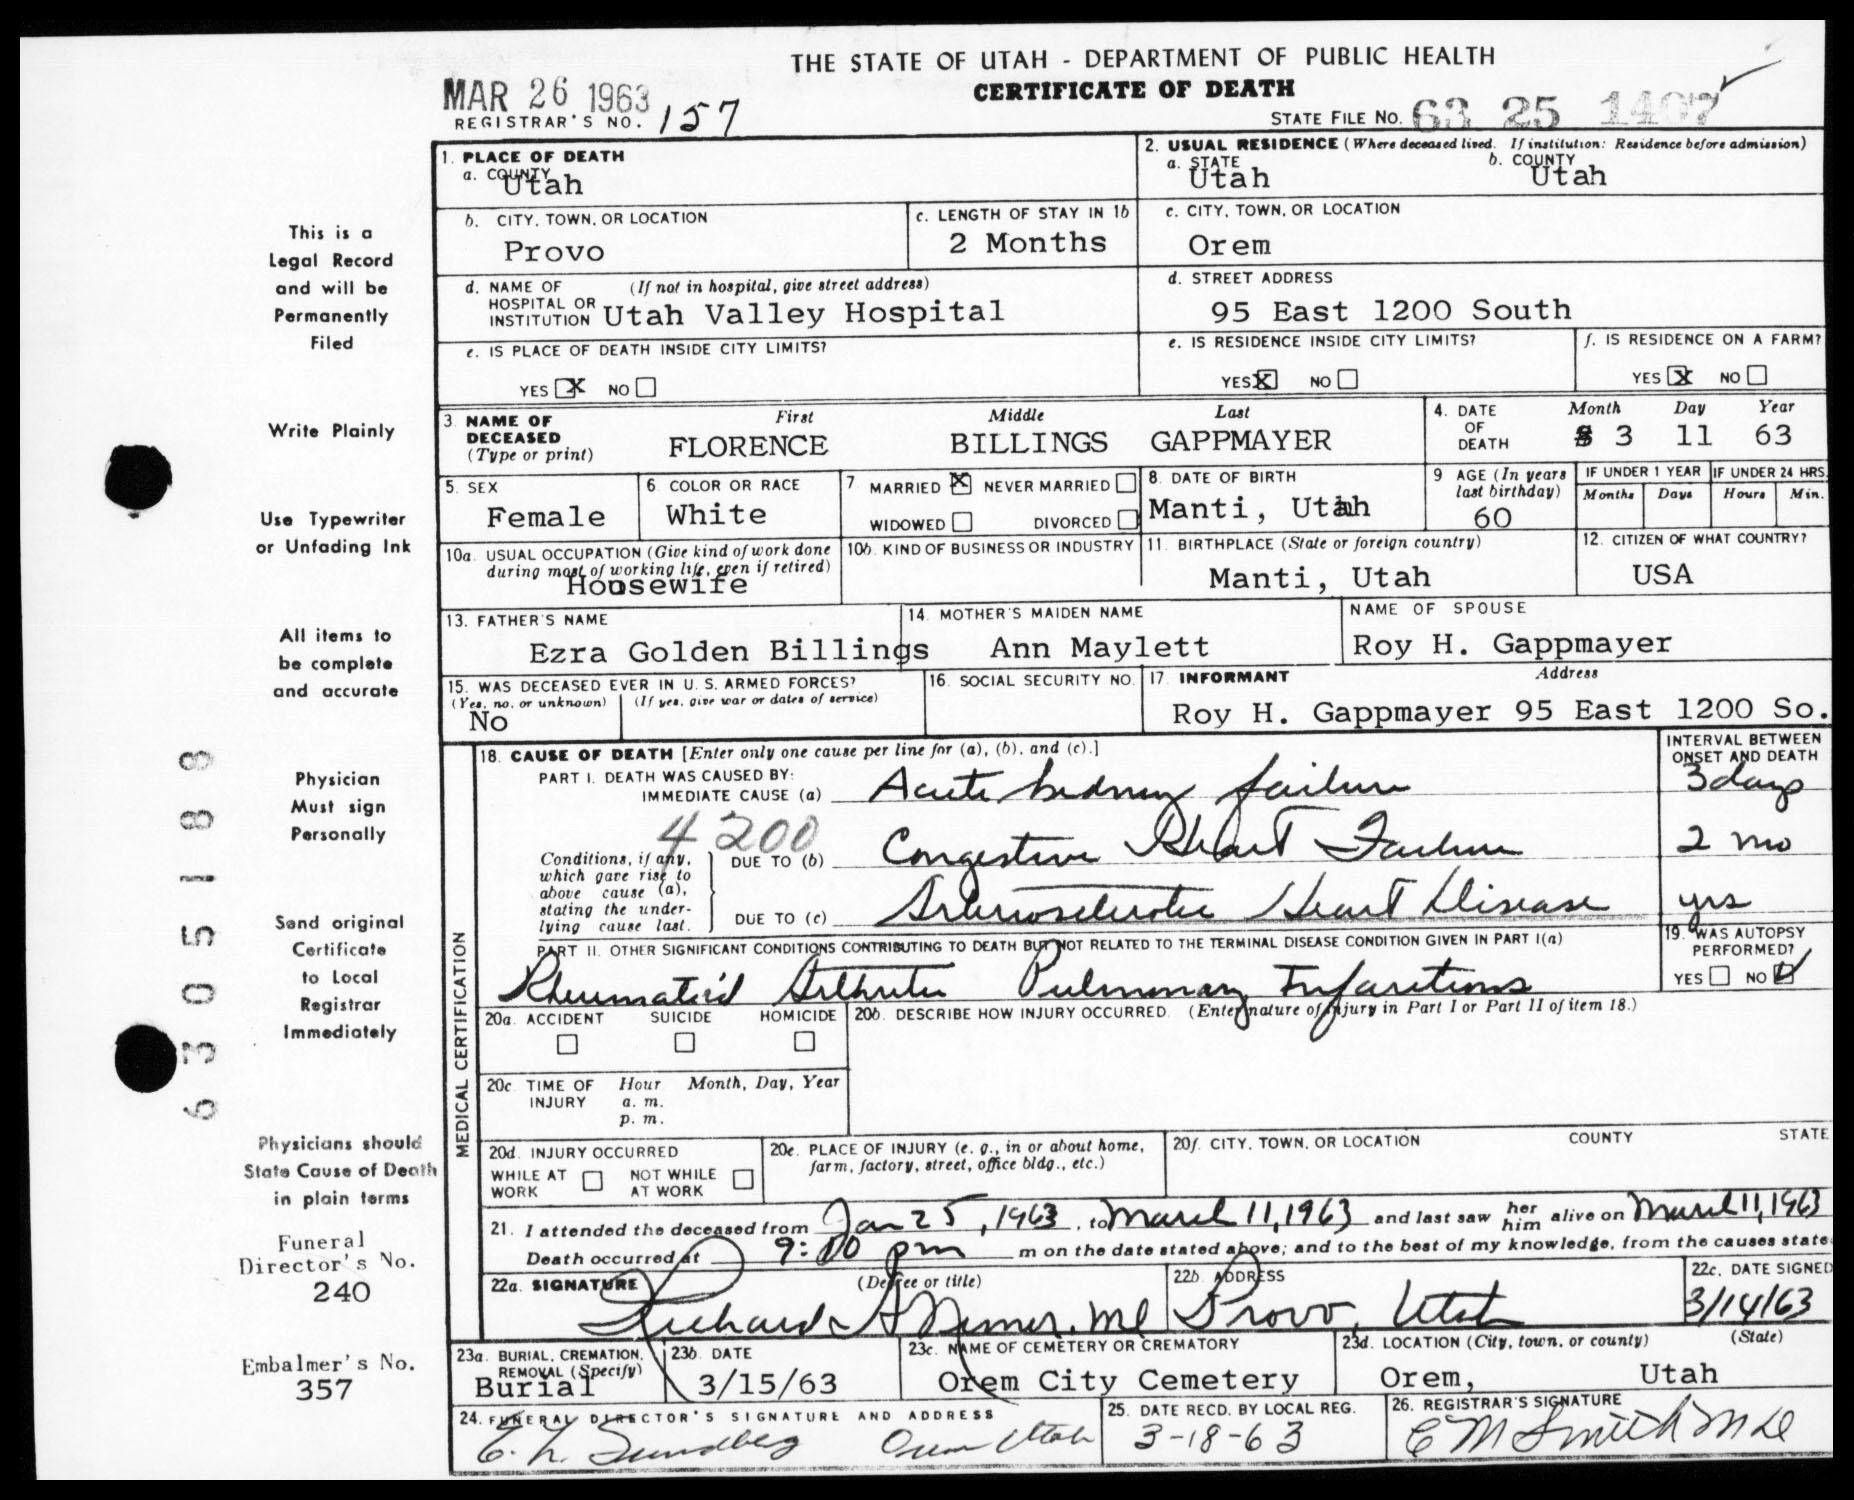 THE STATE OF UTAH - DEPARTMENT OF PUBLIC HEALTH
CERTIFICATE OF DEATH
MAR 26 1963
REGISTRAR'S NO. 157
STATE FILE NO. 63 25 1407
1. PLACE OF DEATH
a. COUNTY
Utah
2. USUAL RESIDENCE (Where deceased lived. If institution: Residence before admission)
a. STATE b. COUNTY
Utah Utah
b. CITY, TOWN, OR LOCATION
Provo
c. LENGTH OF STAY IN 1b
2 Months
c. CITY, TOWN, OR LOCATION
Orem
d. NAME OF HOSPITAL OR INSTITUTION (If not in hospital, give street address)
Utah Valley Hospital
d. STREET ADDRESS
95 East 1200 South
e. IS PLACE OF DEATH INSIDE CITY LIMITS?
YES X NO
e. IS RESIDENCE INSIDE CITY LIMITS?
YES X NO
f. IS RESIDENCE ON A FARM?
YES X NO
3. NAME OF DECEASED (Type or print)
First Middle Last
FLORENCE BILLINGS GAPPMAYER
4. DATE OF DEATH
Month Day Year
3 11 63
5. SEX
Female
6. COLOR OR RACE
White
7. MARRIED X NEVER MARRIED
WIDOWED DIVORCED
8. DATE OF BIRTH
Manti, Utah
9 AGE (In years last birthday)
60
IF UNDER 1 YEAR IF UNDER 24 HRS.
Months Days Hours Min.
10a. USUAL OCCUPATION (Give kind of work done during most of working life, even if retired)
Housewife
10b. KIND OF BUSINESS OR INDUSTRY
11. BIRTHPLACE (State or foreign country)
Manti, Utah
12. CITIZEN OF WHAT COUNTRY?
USA
13. FATHER'S NAME
Ezra Golden Billings
14. MOTHER'S MAIDEN NAME
Ann Maylett
NAME OF SPOUSE
Roy H. Gappmayer
15. WAS DECEASED EVER IN U. S. ARMED FORCES?
(Yes, no, or unknown) (If yes, give war or dates of service)
No
16. SOCIAL SECURITY NO.
17. INFORMANT Address
Roy H. Gappmayer 95 East 1200 So.
MEDICAL CERTIFICATION
18. CAUSE OF DEATH [Enter only one cause per line for (a), (b), and (c).]
INTERVAL BETWEEN ONSET AND DEATH
PART I. DEATH WAS CAUSED BY:
IMMEDIATE CAUSE (a) Acute kidney failure 3 days
4200
Conditions, if any, which gave rise to above cause (a), stating the underlying cause last.
DUE TO (b) Congestive Heart Failure 2 mo
DUE TO (c) Arteriosclerotic Heart Disease yrs
PART II. OTHER SIGNIFICANT CONDITIONS CONTRIBUTING TO DEATH BUT NOT RELATED TO THE TERMINAL DISEASE CONDITION GIVEN IN PART I(a)
Rheumatoid Arthritis Pulmonary Infarctions
19. WAS AUTOPSY PERFORMED?
YES NO
20a. ACCIDENT SUICIDE HOMICIDE
20b. DESCRIBE HOW INJURY OCCURRED. (Enter nature of injury in Part I or Part II of item 18.)
20c. TIME OF INJURY Hour Month, Day, Year
a. m.
p. m.
20d. INJURY OCCURRED
WHILE AT WORK NOT WHILE AT WORK
20e. PLACE OF INJURY (e. g., in or about home, farm, factory, street, office bldg., etc.)
20f. CITY, TOWN, OR LOCATION COUNTY STATE
21. I attended the deceased from Jan 25, 1963, to March 11, 1963 and last saw her him alive on March 11, 1963
Death occurred at 9:00 pm m on the date stated above; and to the best of my knowledge, from the causes state
22a. SIGNATURE (Degree or title)
Richard A MD
22b. ADDRESS
Provo, Utah
22c. DATE SIGNED
3/14/63
23a. BURIAL, CREMATION, REMOVAL (Specify)
Burial
23b. DATE
3/15/63
23c. NAME OF CEMETERY OR CREMATORY
Orem City Cemetery
23d. LOCATION (City, town, or county) (State)
Orem, Utah
24. FUNERAL DIRECTOR'S SIGNATURE AND ADDRESS
E. L. Sundberg Orem Utah
25. DATE RECD. BY LOCAL REG.
3-18-63
26. REGISTRAR'S SIGNATURE
E M Smith MD
This is a
Legal Record
and will be
Permanently
Filed
Write Plainly
Use Typewriter
or Unfading Ink
All items to
be complete
and accurate
Physician
Must sign
Personally
Send original
Certificate
to Local
Registrar
Immediately
Physicians should
State Cause of Death
in plain terms
Funeral
Director's No.
240
Embalmer's No.
357
6305188